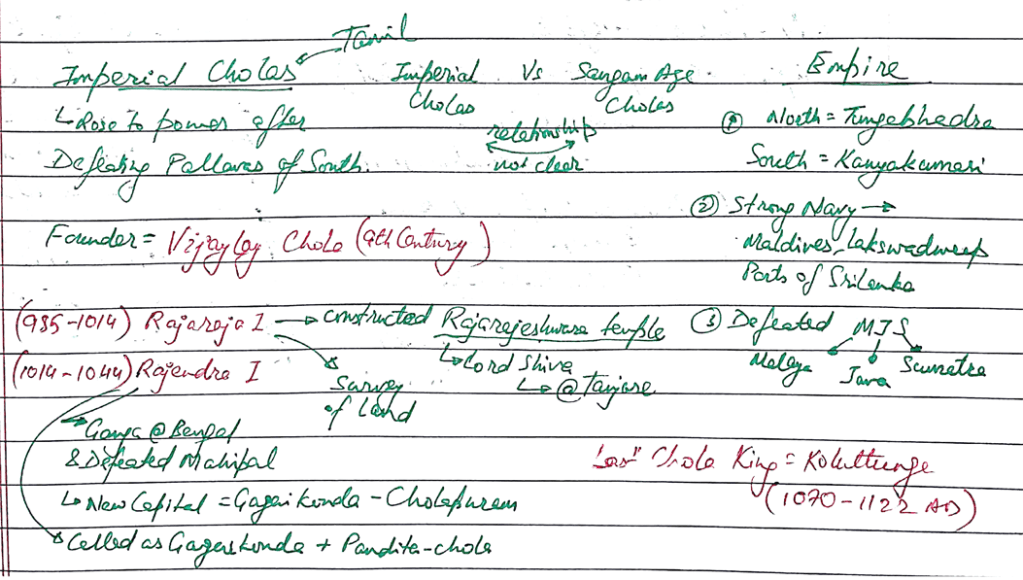 Tamil
Imperial Cholas
Imperial Vs Sangam Age
Cholas Cholas
Empire
↳ Rose to power after
Defeating Pallavas of South.
relationship
not clear
① North = Tungabhadra
South = Kanyakumari
② Strong Navy →
Maldives, Lakswadweep
Parts of Srilanka
Founder = Vijaylay Chola (9th Century)
(985-1014) Rajaraja I → constructed Rajarajeshwara temple
③ Defeated MJS
Malaya Java Sumatra
↳ Lord Shiva
↳ @ Tanjore
(1014-1044) Rajendra I
Survey
of Land
Ganga @ Bengal
& Defeated Mahipal
↳ New Capital = Gagaikonda - Cholapuram
Called as Gagaikonda + Pandita-chola
Last Chola King = Koluttunga
(1070-1122 AD)